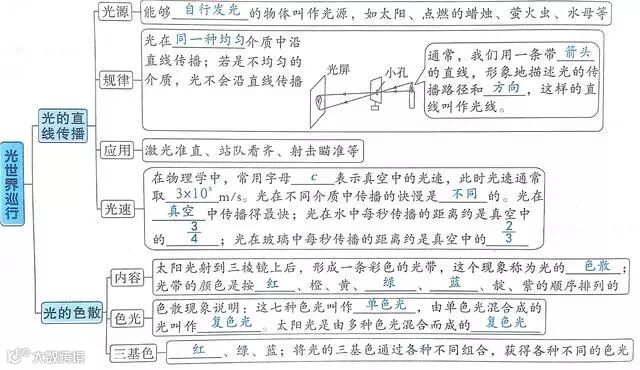 光源
能够 自行发光 的物体叫作光源，如太阳、点燃的蜡烛、萤火虫、水母等
光在 同一种均匀 介质中沿
直线传播；若是不均匀的
介质，光不会沿直线传播
规律
光屏
小孔
通常，我们用一条带 箭头
的直线，形象地描述光的传
播路径和 方向 ，这样的
直线叫作光线。
光的直
线传播
应用
激光准直、站队看齐、射击瞄准等
光世界巡行
在物理学中，常用字母 c 表示真空中的光速，此时光速通常
取 3×10⁸ m/s。光在不同介质中传播的快慢是 不同 的。光在
光速
真空 中传播得最快；光在水中每秒传播的距离约是真空中
的 3/4 ；光在玻璃中每秒传播的距离约是真空中的 2/3
内容
太阳光射到三棱镜上后，形成一条彩色的光带，这个现象称为光的 色散 ；
光带的颜色是按 红 、橙、黄、 绿 、 蓝 、靛、紫的顺序排列的
光的色散
色光
色散现象说明：这七种色光叫作 单色光 ，由单色光混合成的
光叫作 复色光 。太阳光是由多种色光混合而成的 复色光
三基色
红 、绿、蓝；将光的三基色通过各种不同组合，获得各种不同的色光
大数跨境